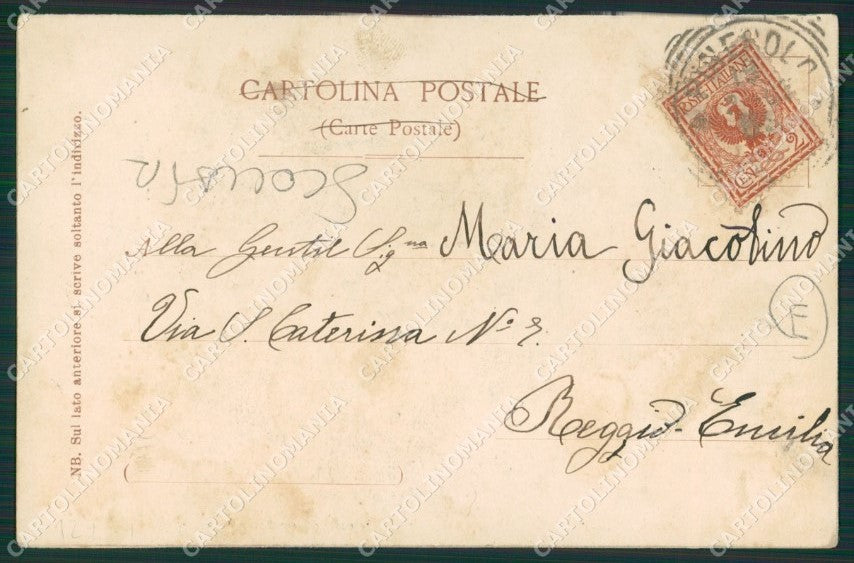 CARTOLINA POSTALE
(Carte Postale)
POSTE ITALIANE
Scozia
Alla Gentil Sig.na Maria Giacobino
Via S. Caterina No
Reggio-Emilia
E
NB. Sul lato anteriore si scrive soltanto l'indirizzo.
CARTOLINOMANIA